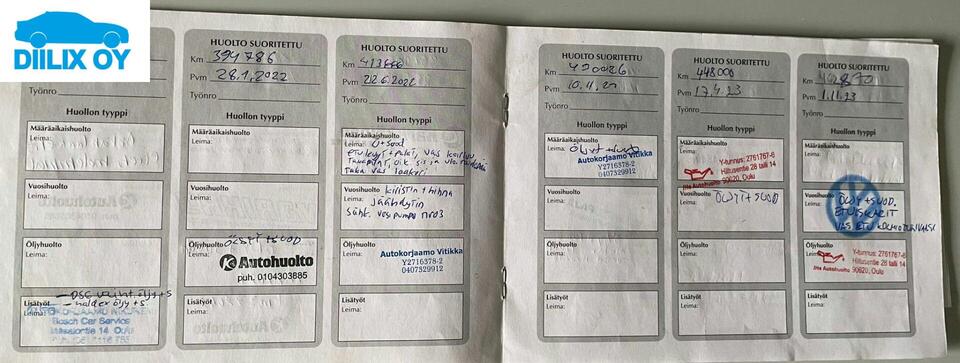 DIILIX OY
Työnro
Huollon tyyppi
Määräaikaishuolto
Leima:
Vuosihuolto
Leima:
Öljyhuolto
Leima:
Lisätyöt
Leima:
- DSG
- haldex öljy + s.
Bosch Car Service
14 Oulu
HUOLTO SUORITETTU
Km 394786
Pvm 28.1.2022
Työnro
Huollon tyyppi
Määräaikaishuolto
Leima:
Vuosihuolto
Leima:
Öljyhuolto
ÖLJYT + SUOD
Autohuolto
puh. 0104303885
Lisätyöt
Leima:
HUOLTO SUORITETTU
Km
Pvm 22.6.2022
Työnro
Huollon tyyppi
Määräaikaishuolto
Leima: Ö + suod
Vuosihuolto
Leima:
Jäähdytin
Öljyhuolto
Leima:
Autokorjaamo Vitikka
Y2716378-2
0407329912
Lisätyöt
Leima:
HUOLTO SUORITETTU
Km 420026
Pvm 10.11.22
Työnro
Huollon tyyppi
Määräaikaishuolto
Leima: Öljyt + suod
Autokorjaamo Vitikka
Y2716378-2
0407329912
Vuosihuolto
Leima:
Öljyhuolto
Leima:
Lisätyöt
Leima:
HUOLTO SUORITETTU
Km 448000
Pvm 17.4.23
Työnro
Huollon tyyppi
Määräaikaishuolto
Leima:
Y-tunnus: 2761767-6
Hiltusentie 28 talli 14
90620, Oulu
Iiris Autohuolto
Vuosihuolto
Leima: ÖLJYT + SUOD
Öljyhuolto
Leima:
Lisätyöt
Leima:
HUOLTO SUORITETTU
Km
Pvm 1.11.23
Työnro
Huollon tyyppi
Määräaikaishuolto
Leima:
Vuosihuolto
Leima: ÖLJYT + SUOD.
VAS ETU
Öljyhuolto
Leima:
Y-tunnus: 2761767-6
Hiltusentie 28 talli 14
90620, Oulu
Iiris Autohuolto
Lisätyöt
Leima: